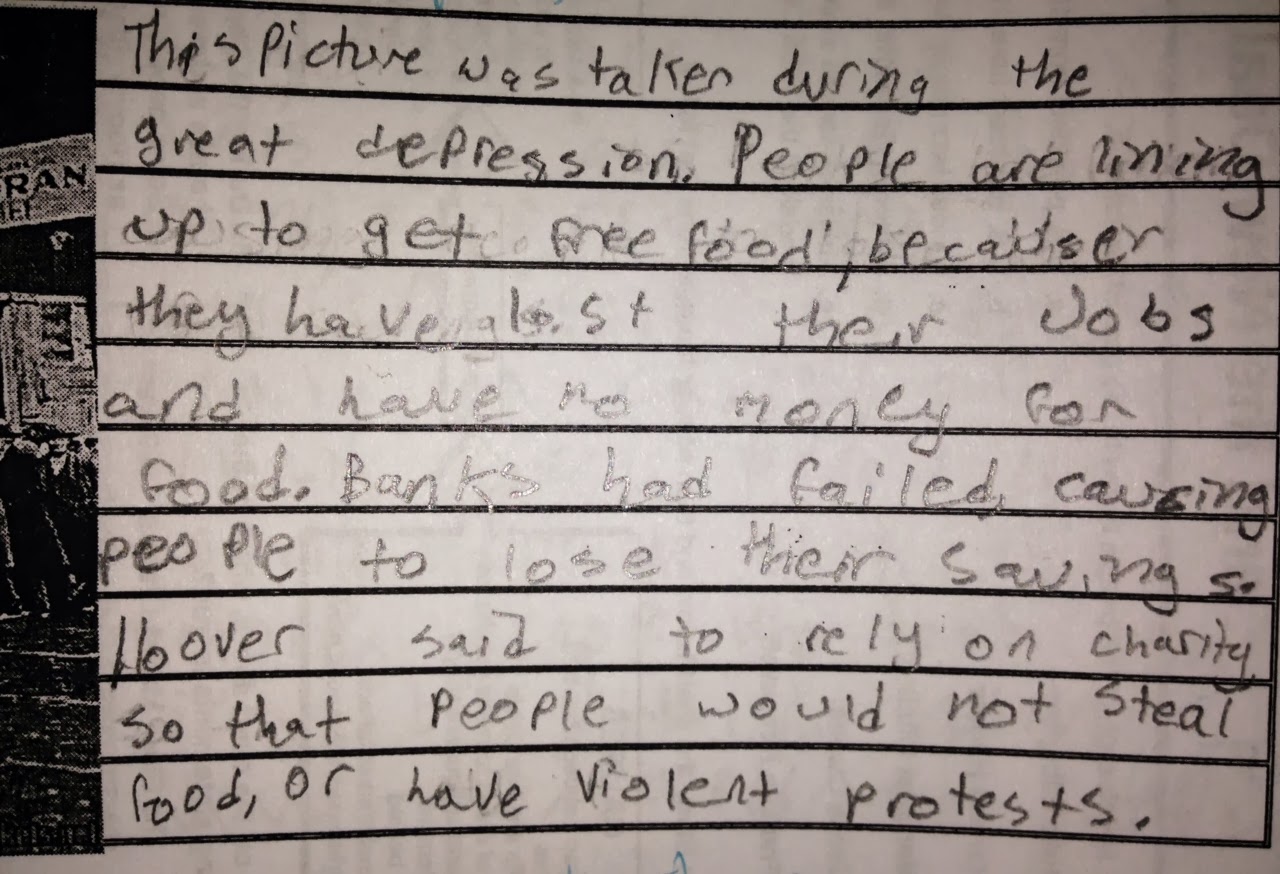 This Picture was taken during the
great depression. People are lining
up to get free food, because
they have lost their Jobs
and have no money for
food. Banks had failed, causing
people to lose their savings.
Hoover said to rely on charity
so that people would not steal
food, or have violent protests.
RAN